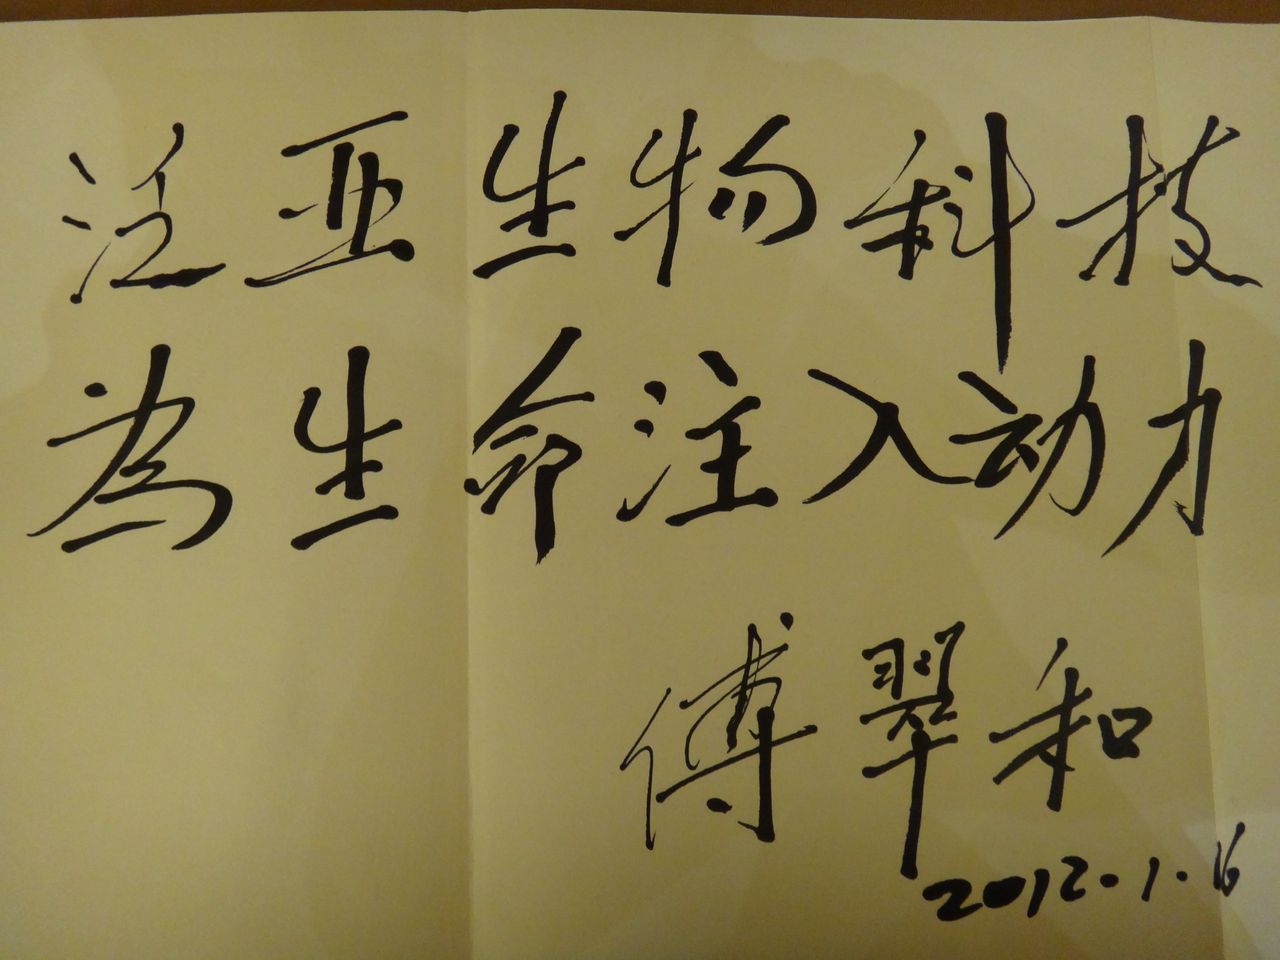 泛亚生物科技
为生命注入动力
傅翠和
2012.1.6